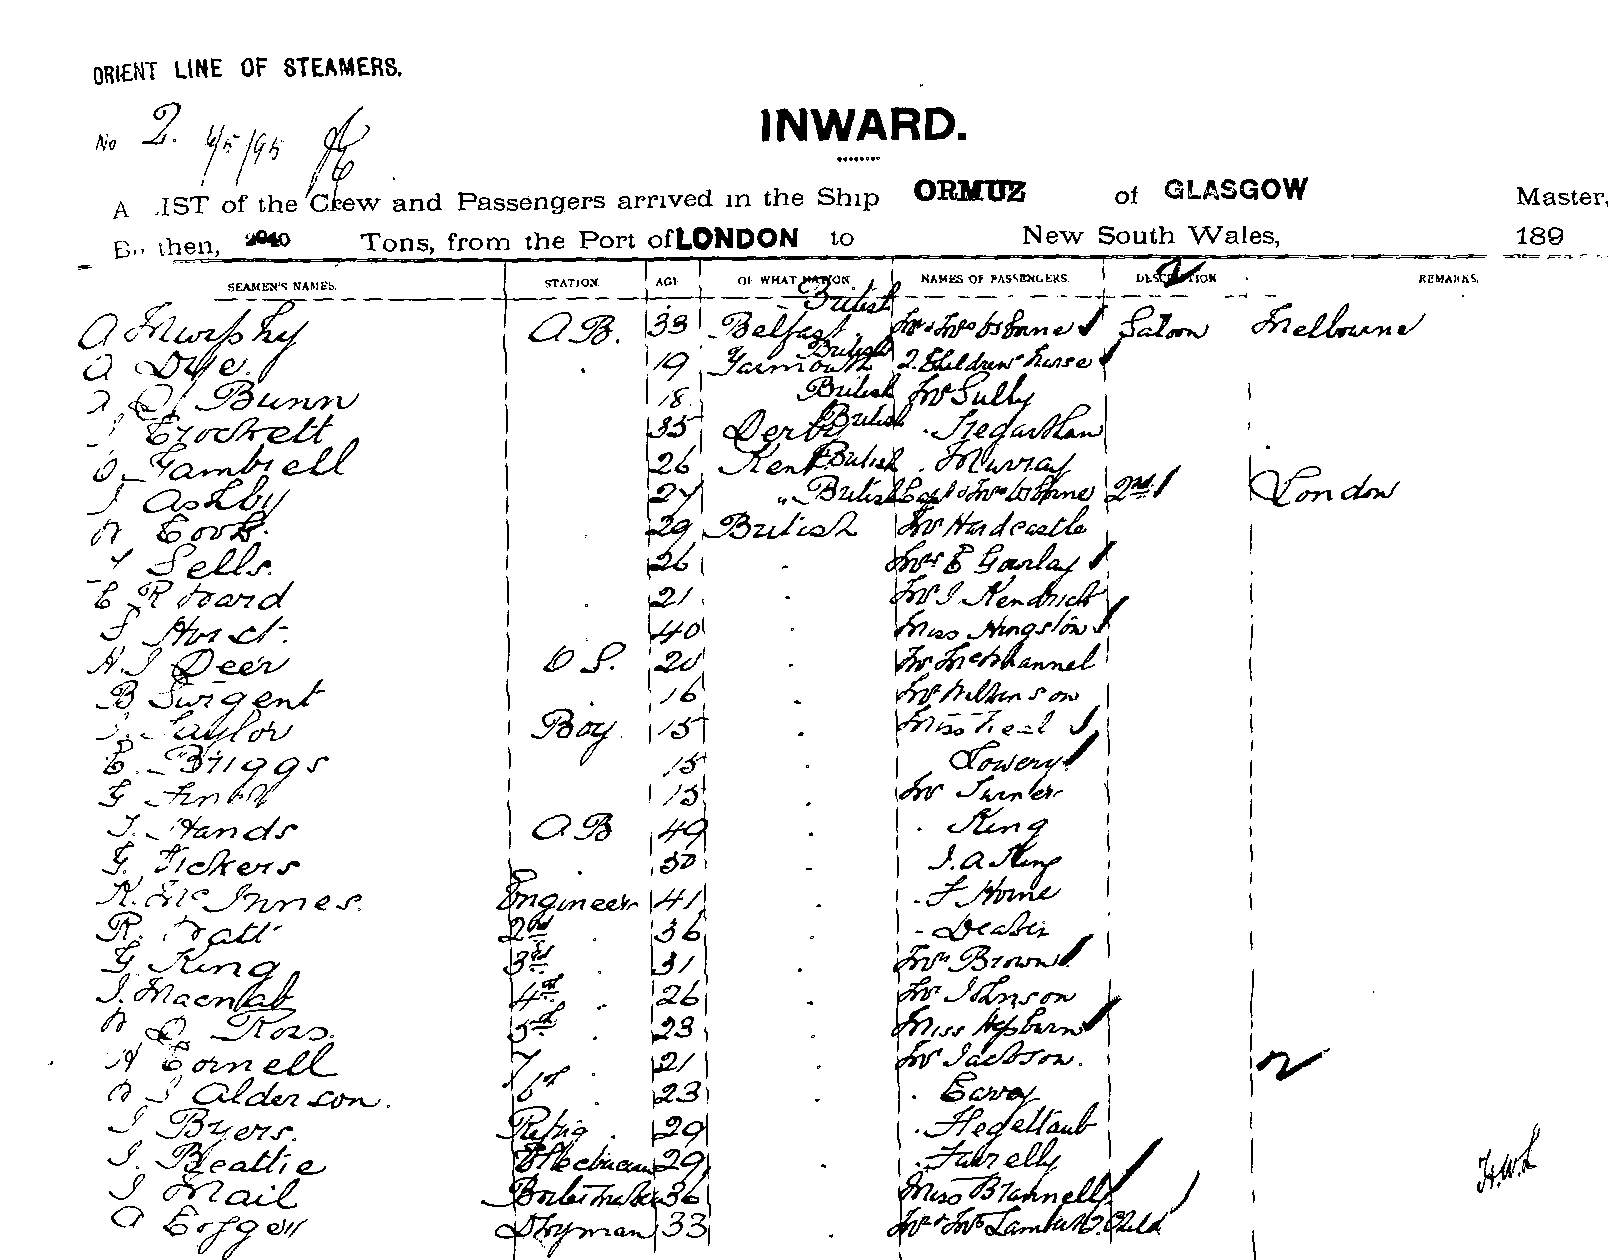 ORIENT LINE OF STEAMERS.
No 2. 6/5/95
INWARD.
A LIST of the Crew and Passengers arrived in the Ship ORMUZ of GLASGOW Master,
Burthen, Tons, from the Port of LONDON to New South Wales, 189
SEAMEN'S NAMES. STATION. AGE OF WHAT NATION. NAMES OF PASSENGERS. DESCRIPTION REMARKS.
British
A Murphy A B. 33 Belfast Mr & Mrs Osborne Saloon Melbourne
A Dye. 19 Yarmouth British 2. Children & nurse
Bunn 18 British Mr Sully
Crockett 35 Derby British Tregarthan
Gambrell 26 Kent British Murray
J Ashby 27 " British Capt & Mrs Osborne 2nd London
W Cook. 29 British Mr Hardcastle
Sells. 26 Mrs E Gourlay
E R Ward 21 Mr J Kendrick
Hurst. 40 Miss Kingston
H. J Deer O S. 20 Mr
B Surgent 16 Mr Wilkinson
Taylor Boy 15 Miss
E. Briggs 15 Lowery
G 15 Mr Turner
J. Hands A B 49 King
G. Vickers 30 J. A King
K. McInnes. Engineer 41 F Horne
R. Watt 2nd 36
G. King 3rd 31 Mrs Brown
J. Macnab 4th 26 Mr Johnson
W D. Ross. 5th 23 Miss Hepburn
A Cornell 7 21 Mr Jackson.
W J Alderson. 6th 23
J Byers. Refrig 29
J. Beattie 29 Farrelly
J Mail Boilermaker 36 Miss Brannelly
A Storeyman 33 Mr & Mrs Lambert & Child
H.W.L